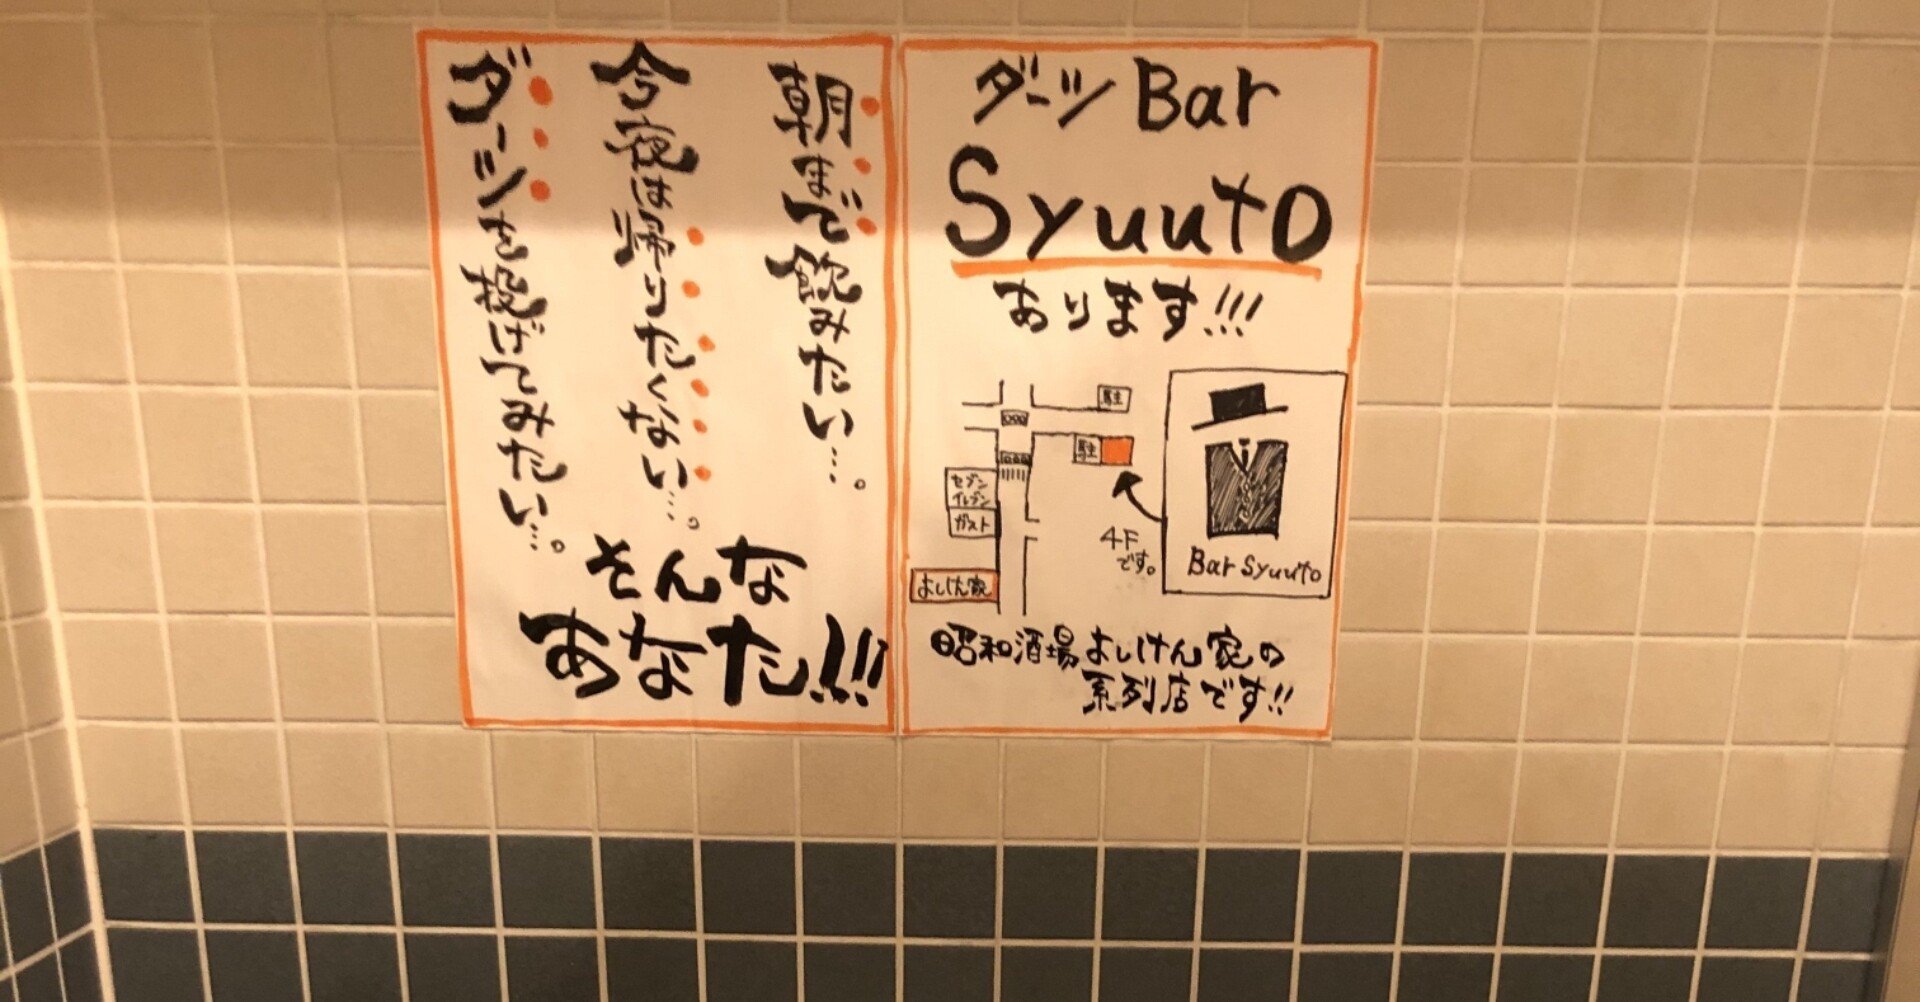 朝まで飲みたい…。
今夜は帰りたくない…。
ダーツを投げてみたい…。
そんな
あなた!!!
ダーツBar
Syuuto
あります!!!
駐
駐
セブン
イレブン
ガスト
よしけん家
4F
です。
Bar Syuuto
昭和酒場よしけん家の
系列店です!!